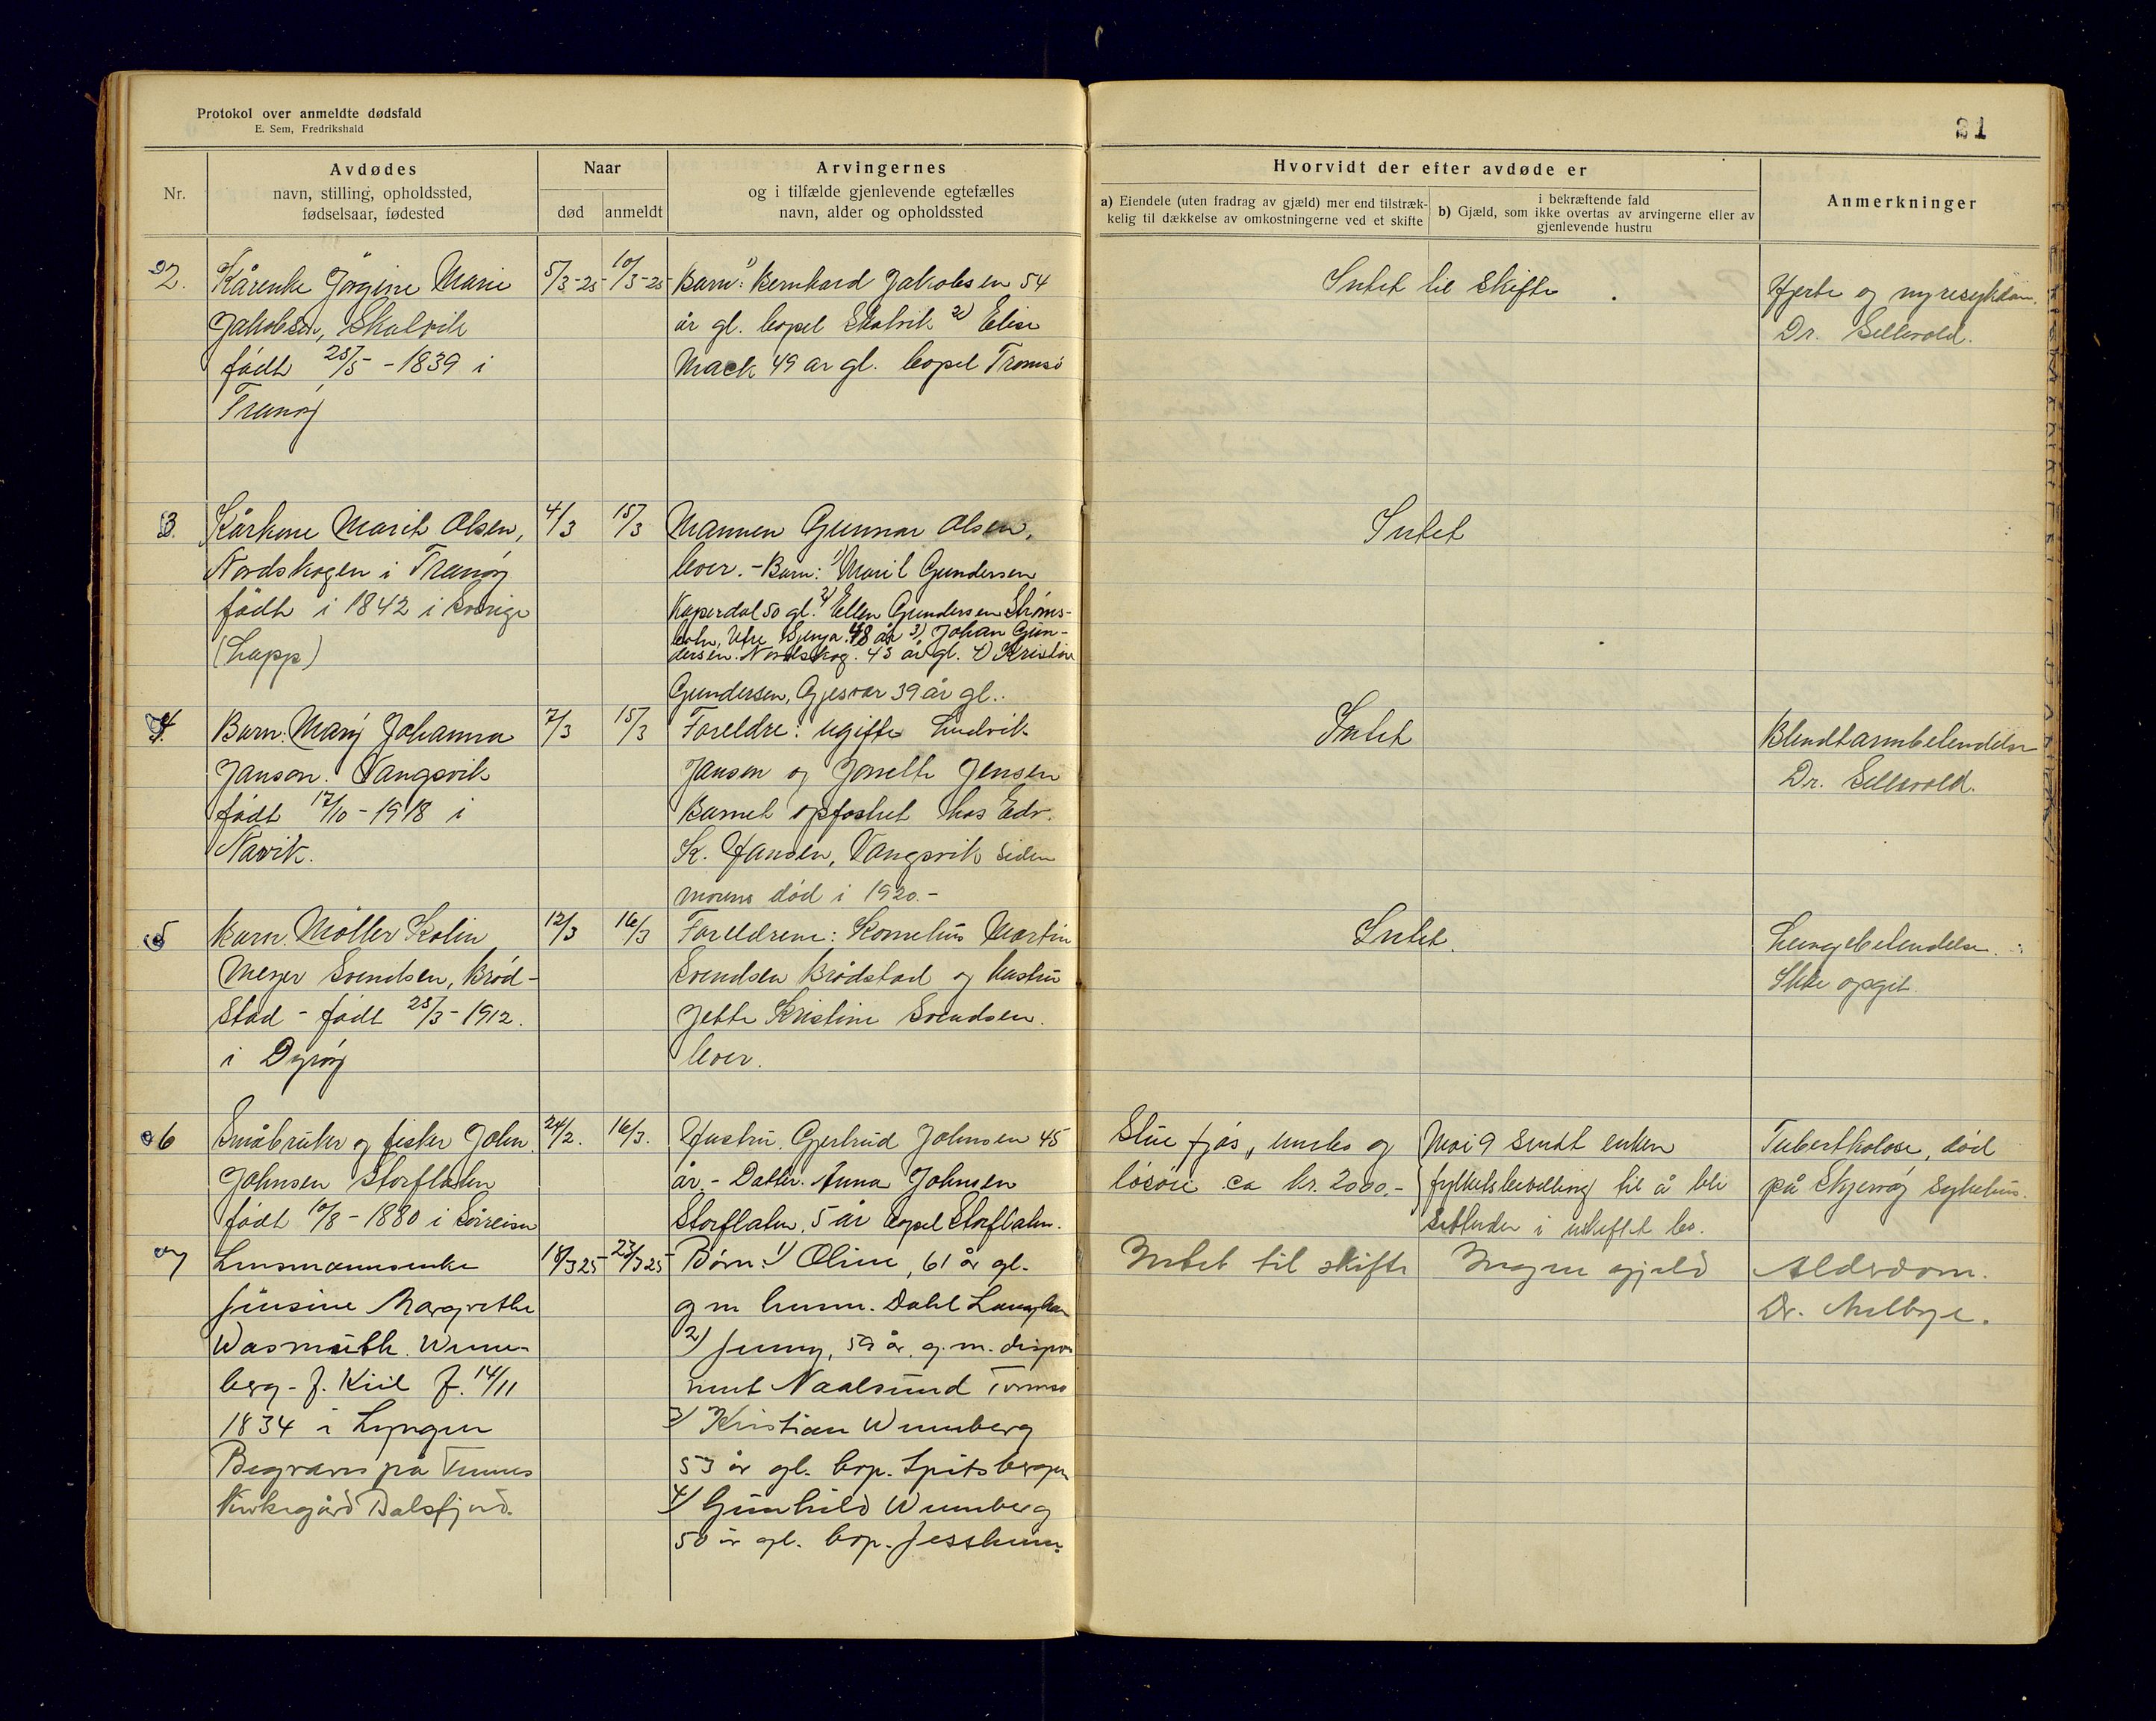 Protokol over anmeldte dødsfald
E. Sem, Fredrikshald
21
Nr.
Avdødes
navn, stilling, opholdssted,
fødselsaar, fødested
Naar
død
anmeldt
Arvingernes
og i tilfælde gjenlevende egtefælles
navn, alder og opholdssted
Hvorvidt der efter avdøde er
a) Eiendele (uten fradrag av gjæld) mer end tilstræk-
kelig til dækkelse av omkostningerne ved et skifte
i bekræftende fald
b) Gjæld, som ikke overtas av arvingerne eller av
gjenlevende hustru
Anmerkninger
2.
Kårenke Jørgine Marie
Jakobsen, Skalvik
født 25/5 - 1839 i
Tranøy
5/3-25
10/3-25
Barn: 1) Bernhard Jakobsen 54
år gl. bopel Skalvik 2) Elise
Mack 49 år gl. bopel Tromsø
Intet til skifte.
Hjerte og nyresykdom.
Dr. Sellevold.
3.
Kårkone Marit Olsen,
Nordskogen i Tranøy
født i 1842 i Sverige
(Lapp)
4/3
15/3
Mannen Gunnar Olsen,
lever. - Barn: 1) Marit Gundersen
Kaperdal 50 gl. 2) Ellen Gundersen Strøms-
botn, Ytre Senja 48 år 3) Johan Gun-
dersen. Nordskog. 43 år gl. 4) Kristine
Gundersen, Gjesvær 39 år gl.
Intet
4.
Barn: Mary Johanna
Janson. Vangsvik
født 17/10 - 1918 i
Navik.
7/3
15/3
Foreldre: ugifte Ludvik
Jansen og Jonette Jensen
Barnet opfostret hos Edv.
K. Hansen, Vangsvik siden
morens død i 1920. -
Intet
Blindtarmbetendelse
Dr. Sellevold.
5
Barn. Møller Kolin
Meyer Svendsen, Brød-
stad - født 25/3 - 1912.
i Dyrøy
12/3
16/3
Foreldrene: Kornelius Martin
Svendsen Brødstad og hustru
Jette Kristine Svendsen.
lever.
Intet.
Lungebetendelse.
Ikke opgit.
6
Småbruker og fisker John
Johnsen Storflaten
født 10/8 - 1880 i Sørreisa
24/2.
16/3.
Hustru. Gjertrud Johnsen 45
år. - Datter. Anna Johnsen
Storflaten, 5 år bopel Storflaten.
Stue fjøs, innbo og
løsøre ca kr. 2000.-
Mai 9 sendt enken
fylkesbevilling til å bli
sittende i uskiftet bo.
Tuberkulose, død
på Skjervøy sykehus.
7
Lensmannsenke
Jensine Margrethe
Wasmuth Wenn-
berg - f. Kiil f. 14/11
1834 i Lyngen
Begraves på Tennes
Kirkegård Balsfjord.
18/3 25
23/3 25
Børn: 1) Oline, 61 år gl.
g m lensm. Dahl
2) Jenny, 59 år, g. m. dispo
nent Naalsund Tromsø
3) Kristian Wennberg
53 år gl. bop. Spitsbergen
4) Gunhild Wennberg
50 år gl. bop. Jessheim.
Intet til skifte
Ingen gjeld
Alderdom.
Dr. Aalbye.